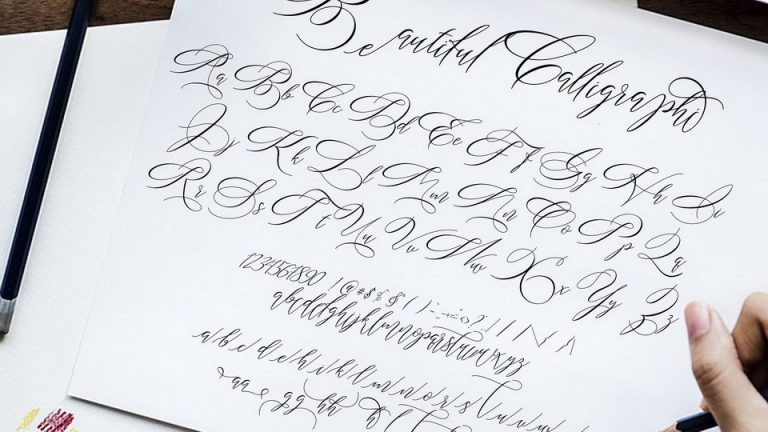 Beautiful Calligraphi
Aa Bb Cc Dd Ee Ff Gg Hh Ii
Jj Kk Ll Mm Nn Oo Pp Qq
Rr Ss Tt Uu Vv Ww Xx Yy Zz
1234561890 ! @ # $ % & ( )
abcdefghijklmnopqrstuvwxyz
a b c d e f g h i j k l m n o r s t u v w
aa gg hh